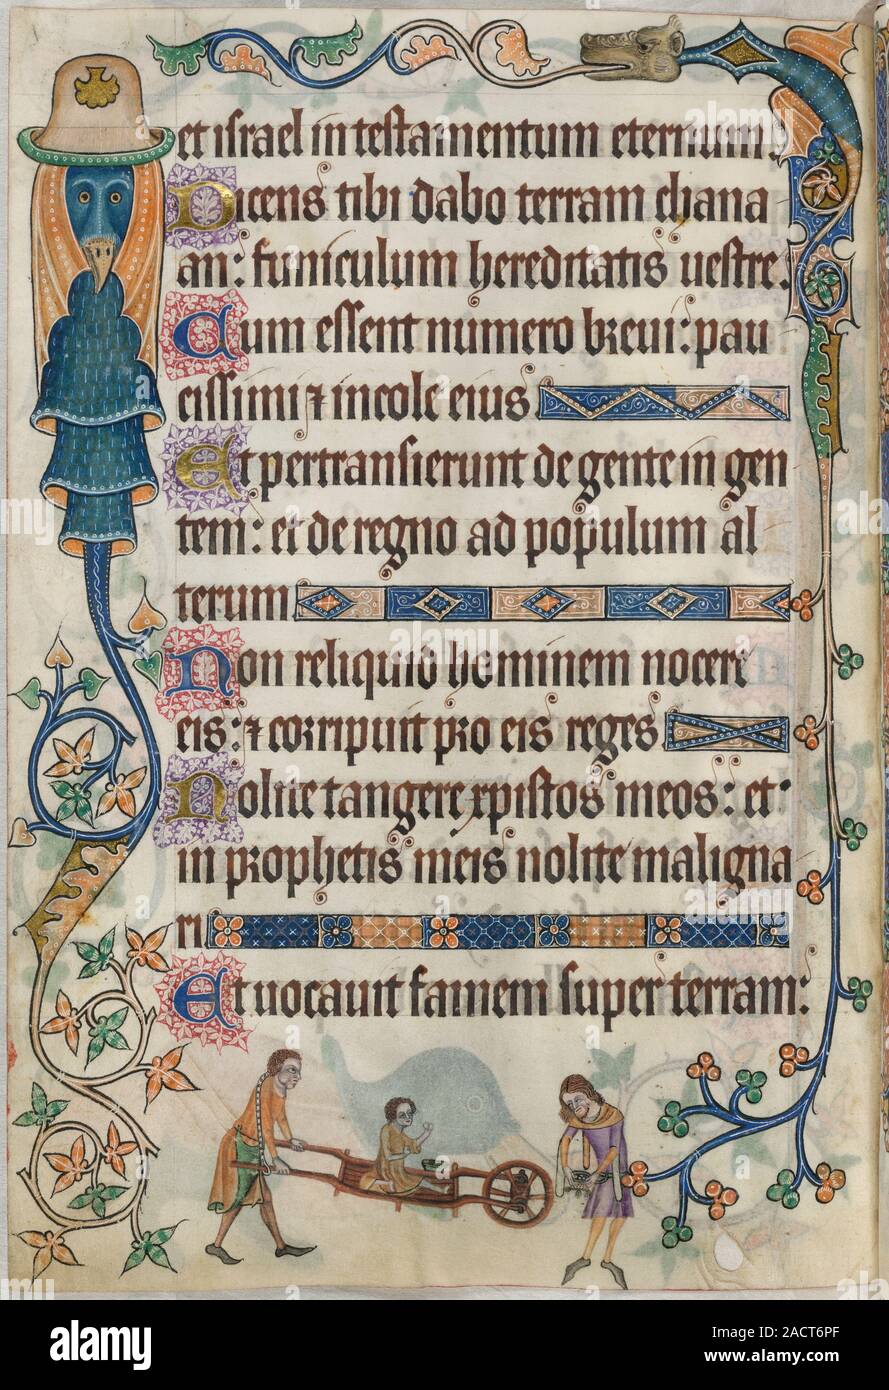 et israel in testamentum eternum.
Dicens tibi dabo terram chana
an: funiculum hereditatis uestre.
Cum essent numero breui: pau
cissimi ⁊ incole eius
Et pertransierunt de gente in gen
tem: et de regno ad populum al
terum
Non reliquid hominem nocere
eis: ⁊ corripuit pro eis reges
Nolite tangere xpistos meos: et
in prophetis meis nolite maligna
ri
Et uocauit famem super terram:
alamy
Image ID: 2ACT6PF
www.alamy.com